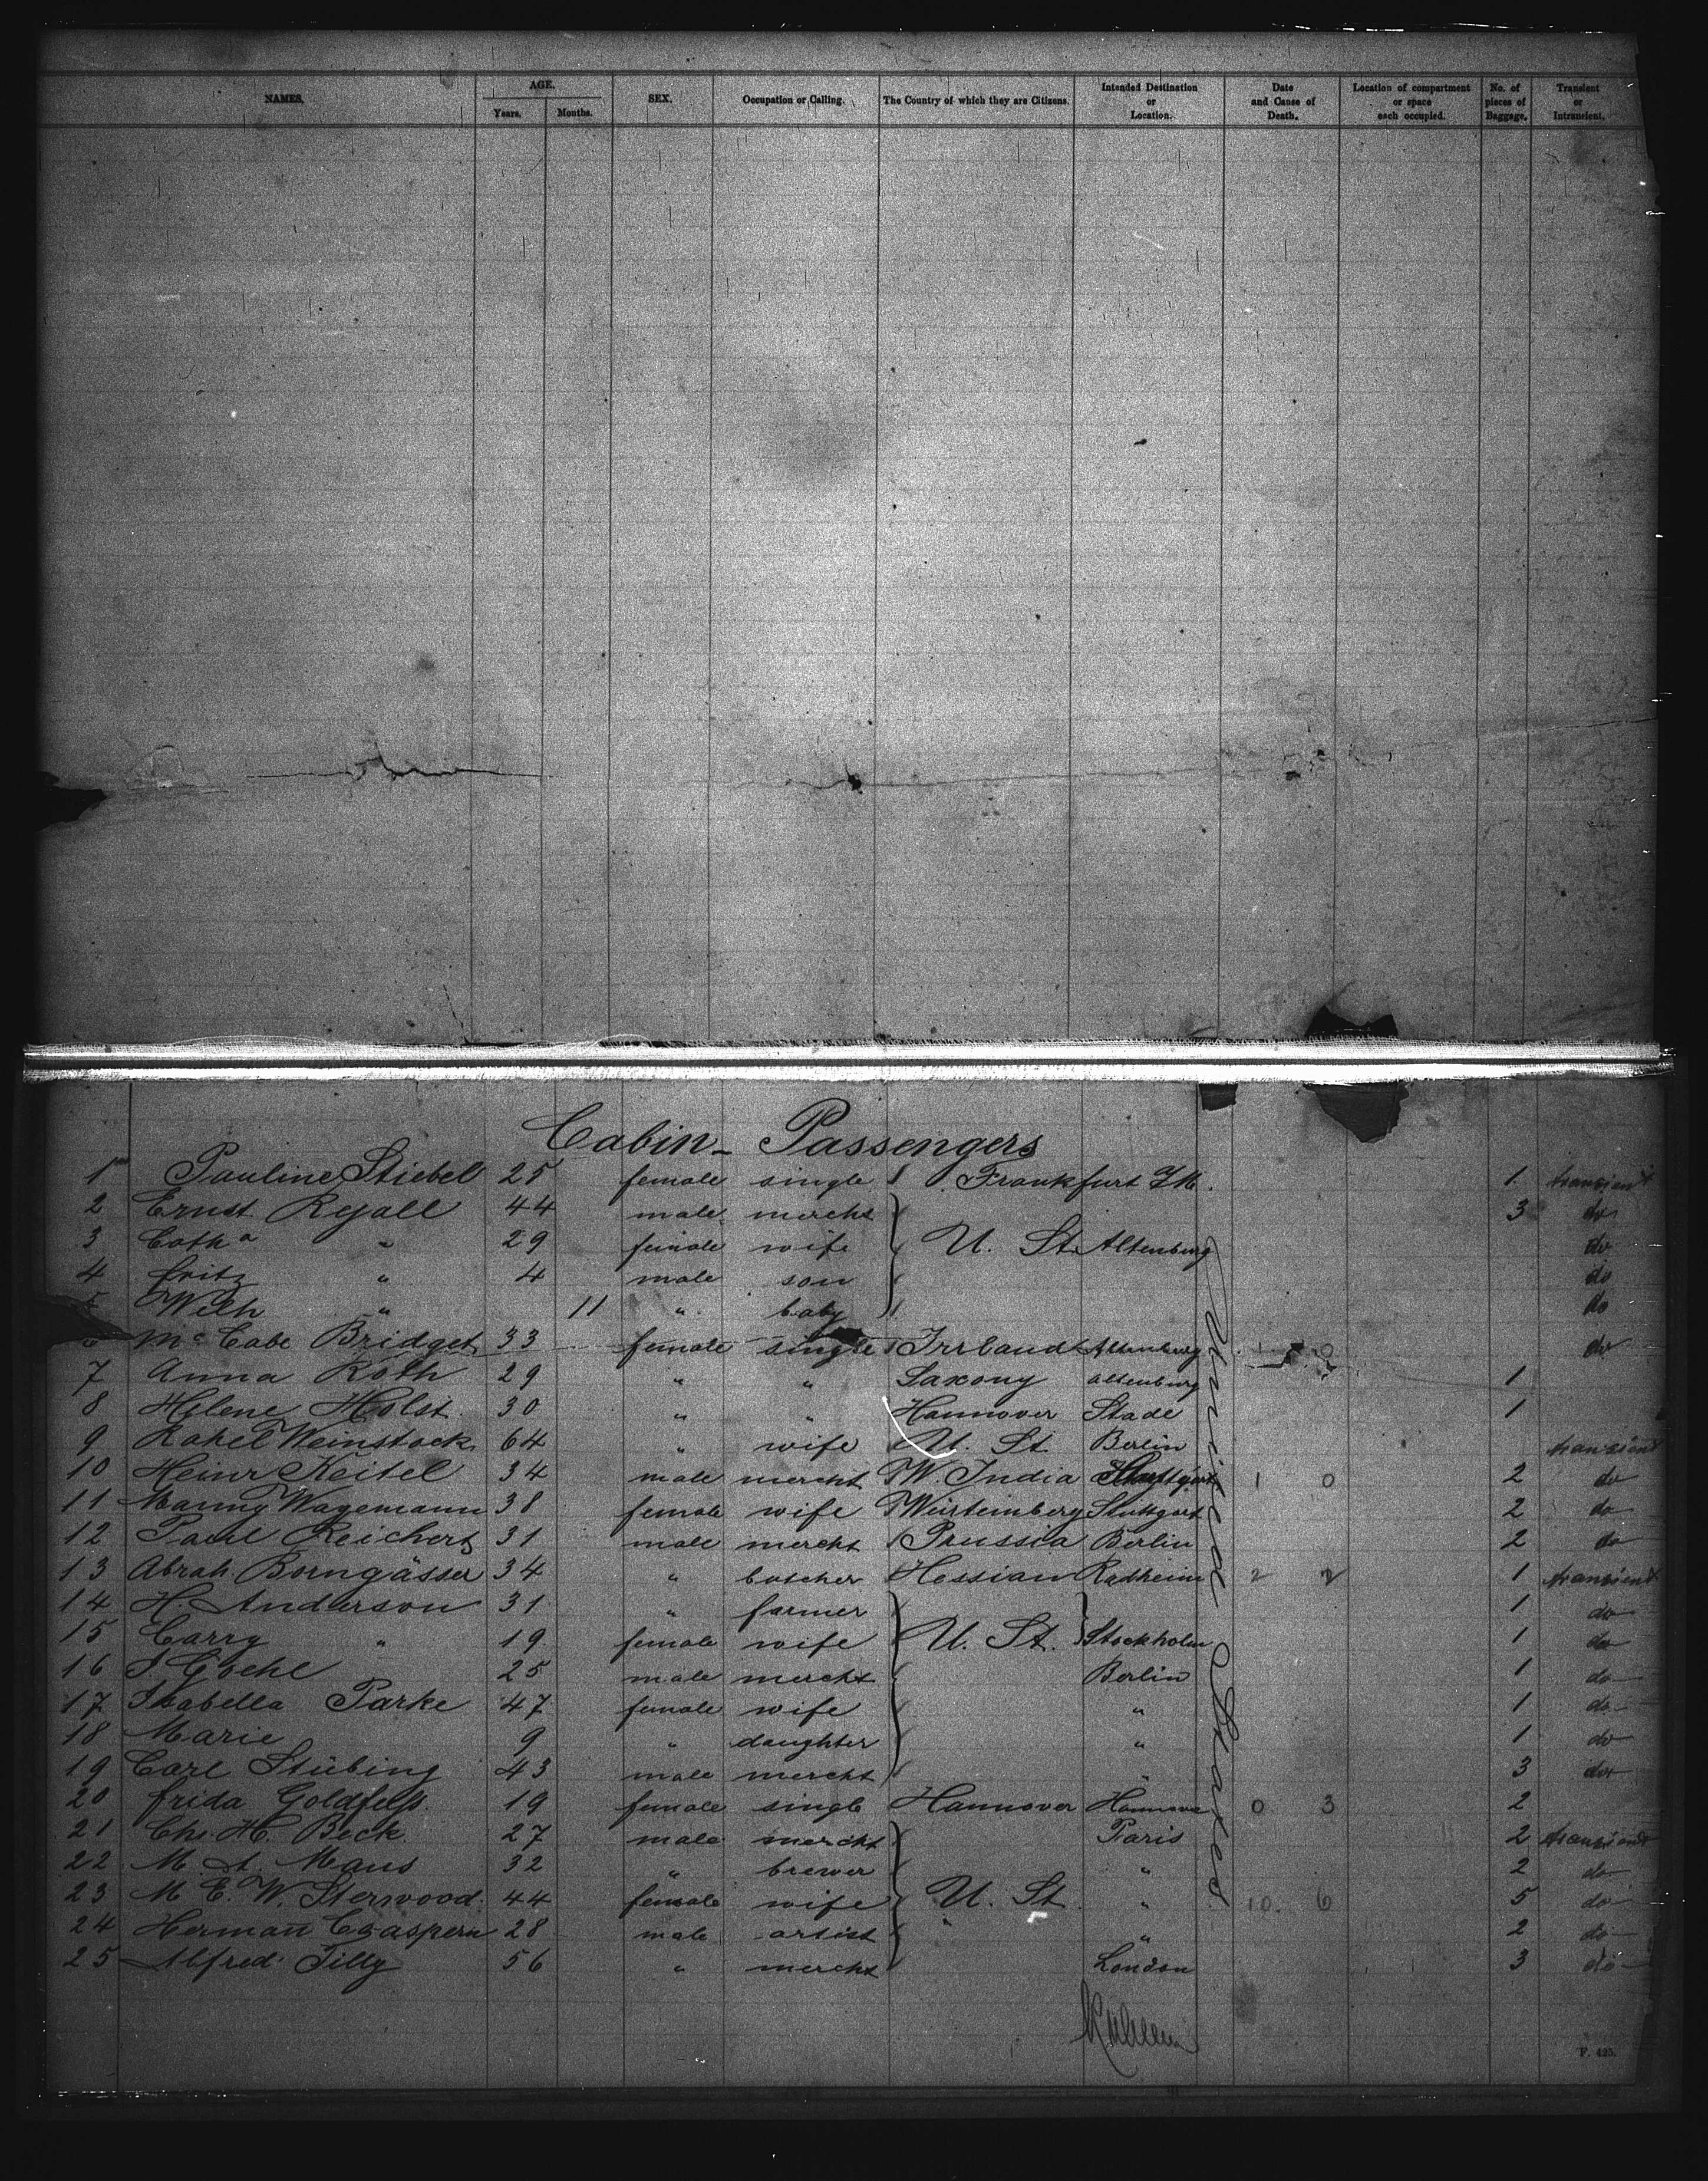 NAMES. AGE. Years. Months. SEX. Occupation or Calling. The Country of which they are Citizens. Intended Destination or Location. Date and Cause of Death. Location of compartment or space each occupied. No. of pieces of Baggage. Transient or Intransient.
Cabin - Passengers
1 Pauline Stiebel 25 female single Frankfurt 1. transient
2 Ernst Ryall 44 male mercht 3 do
3 Cath a " 29 female wife U. St. Altenburg do
4 Fritz " 4 male son do
5 Wilh " 11 " baby do
6 Mc Cabe Bridget 33 female single Irrland Altenburg 1 0 do
7 Anna Roth 29 " " Saxony Altenburg 1
8 Helene Holst 30 " " Hannover Stade 1
9 Rahel Weinstock 64 " wife U. St. Berlin transient
10 Heinr Keitel 34 male mercht W. India 1 0 2 do
11 Manny Wagemann 38 female wife Würtemberg Stuttgart 2 do
12 Paul Reichert 31 male mercht Prussia Berlin 2 do
13 Abrah. Borngässer 34 " botcher Hessian Radheim 2 2 1 transient
14 H. Anderson 31 " farmer 1 do
15 Carry " 19 female wife U. St. Stockholm 1 do
16 J. Goehl 25 male mercht Berlin 1 do
17 Isabella Parke 47 female wife " 1 do
18 Marie 9 " daughter " 1 do
19 Carl Stübing 43 male mercht " 3 do
20 Frida Goldfelß 19 female single Hannover Hannover 0 3 2
21 Chr. H. Beck 27 male mercht Paris 2 transient
22 M. A. Maus 32 " brewer " 2 do
23 M E. W. Sterwood 44 female wife U. St. " 10. 6 5 do
24 Herman Caspern 28 male artist " " 2 do
25 Alfred Tilly 56 " mercht London 3 do
United States
F. 425.